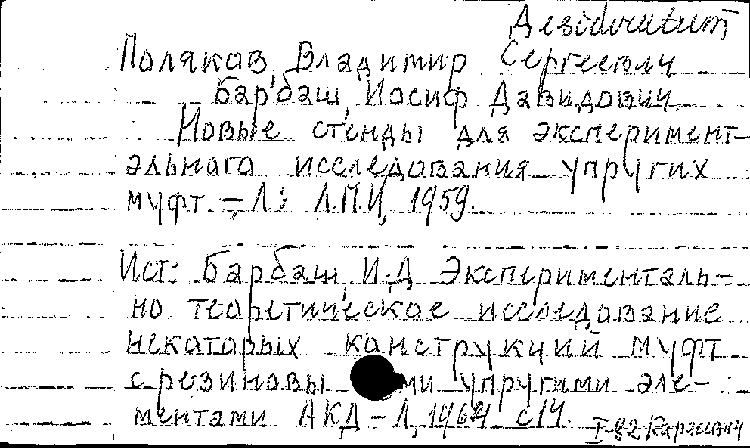 Desideratum
Поляков, Владимир Сергеевич
Барбаш, Иосиф Давидович
Новые стенды для эксперимент-
ального исследования упругих
муфт. – Л.: Л.П.И, 1959.
Ист: Барбаш, И.Д Эксперименталь-
но теоретическое исследование
некоторых конструкций муфт
с резиновы ми упругими эле-
ментами АКД – Л, 1964 с14.